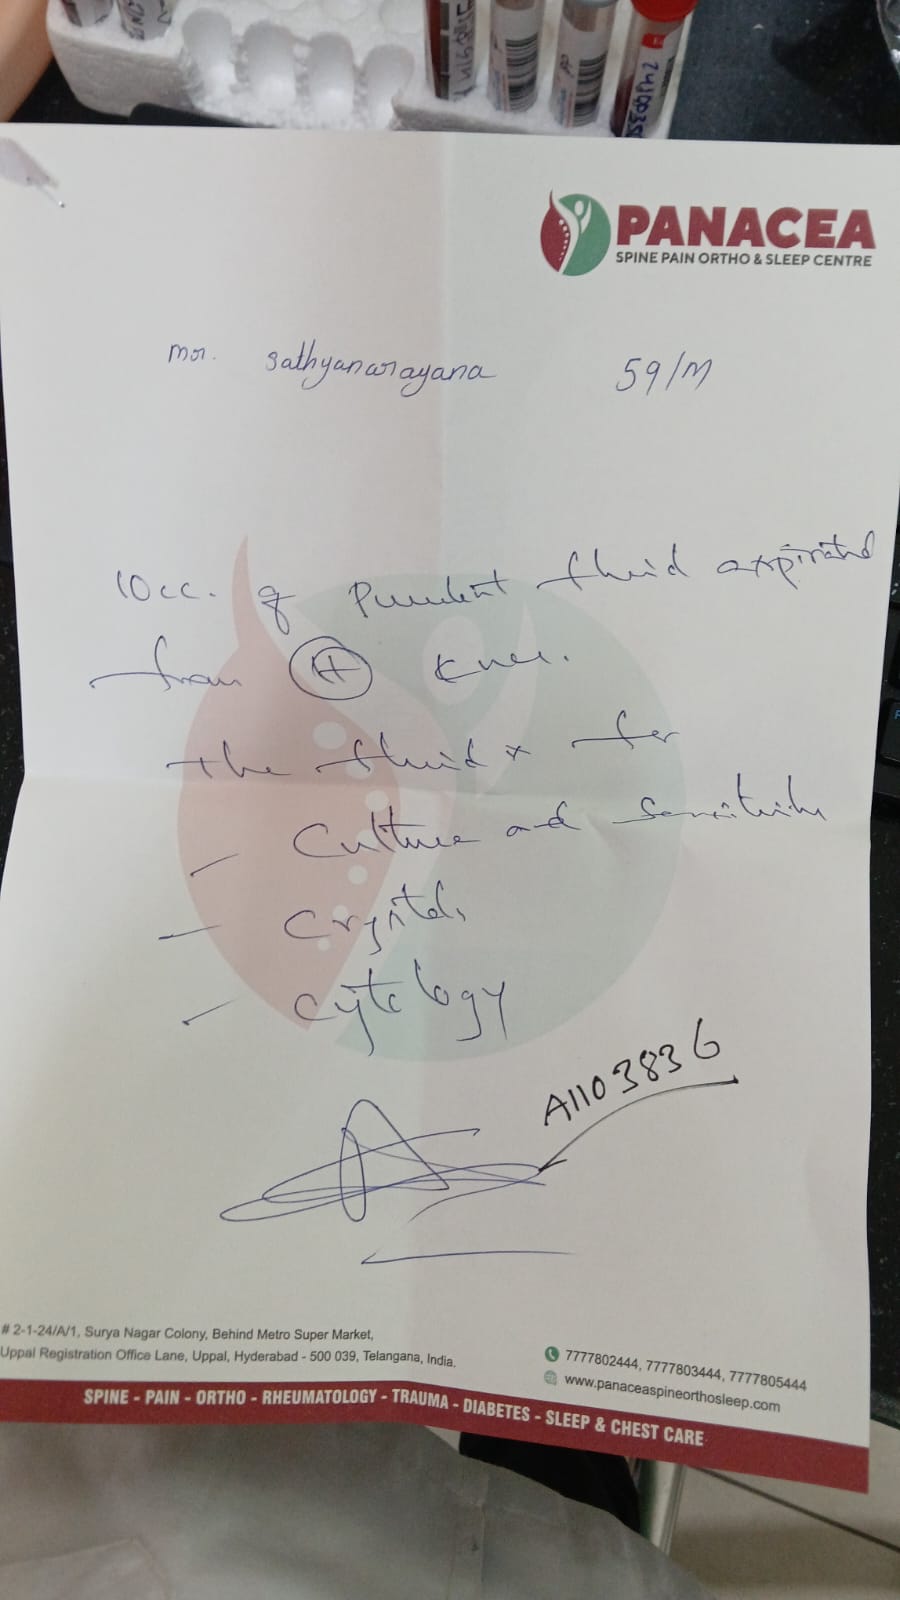 PANACEA
SPINE PAIN ORTHO & SLEEP CENTRE
Mr. Sathyanarayana 59/M
10cc. of Purulent fluid aspirated
from knee.
The fluid x for
- Culture and Sensitivity
- Crystals
- Cytology
A1103836
# 2-1-24/A/1, Surya Nagar Colony, Behind Metro Super Market,
Uppal Registration Office Lane, Uppal, Hyderabad - 500 039, Telangana, India.
7777802444, 7777803444, 7777805444
www.panaceaspineorthosleep.com
SPINE - PAIN - ORTHO - RHEUMATOLOGY - TRAUMA - DIABETES - SLEEP & CHEST CARE